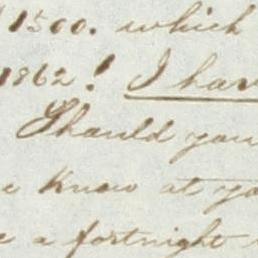 1500. which
1862! I hav
Should you
Know at yo
a fortnight